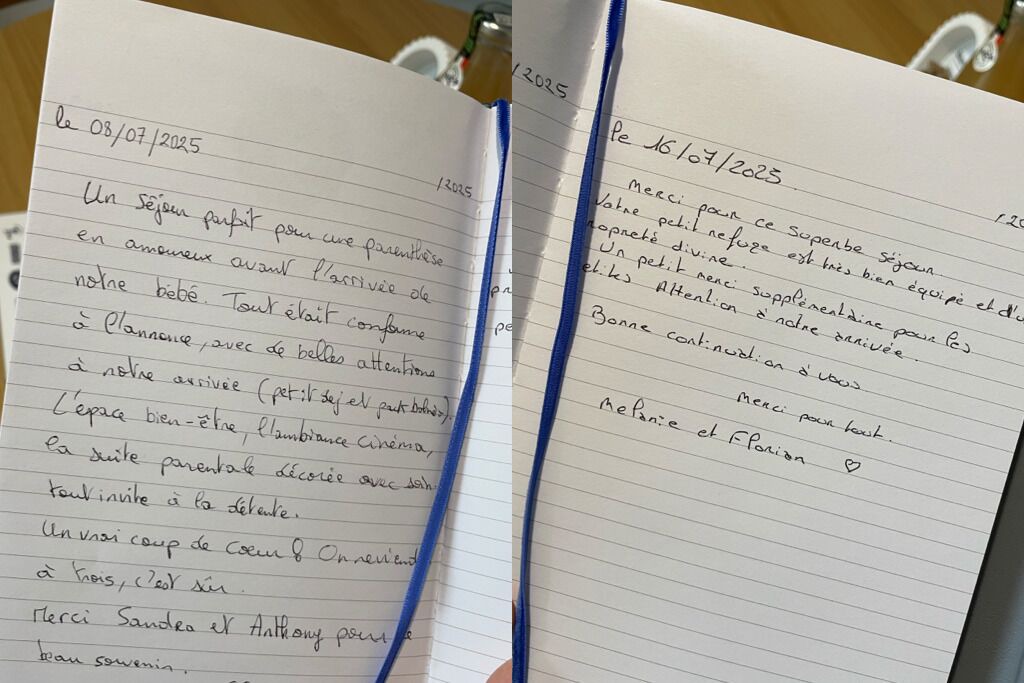 le 08/07/2025
/2025
Un séjour parfait pour une parenthèse
en amoureux avant l'arrivée de
notre bébé. Tout était conforme
à l'annonce, avec de belles attentions
à notre arrivée (petit dej et pack
L'épace bien-être, l'ambiance cinéma,
la suite parentale décorée avec soin
tout invite à la détente.
Un vrai coup de coeur ! On revient
à trois, c'est sûr.
Merci Sandra et Anthony pour le
beau souvenir.
/2025
le 16/07/2025.
Merci pour ce superbe séjour.
Votre petit refuge est très bien équipé et d'u
ropreté divine.
Un petit merci supplémentaire pour les
etites Attention à notre arrivée.
Bonne continuation à vous
Merci pour tout.
Melanie et Florian ♡